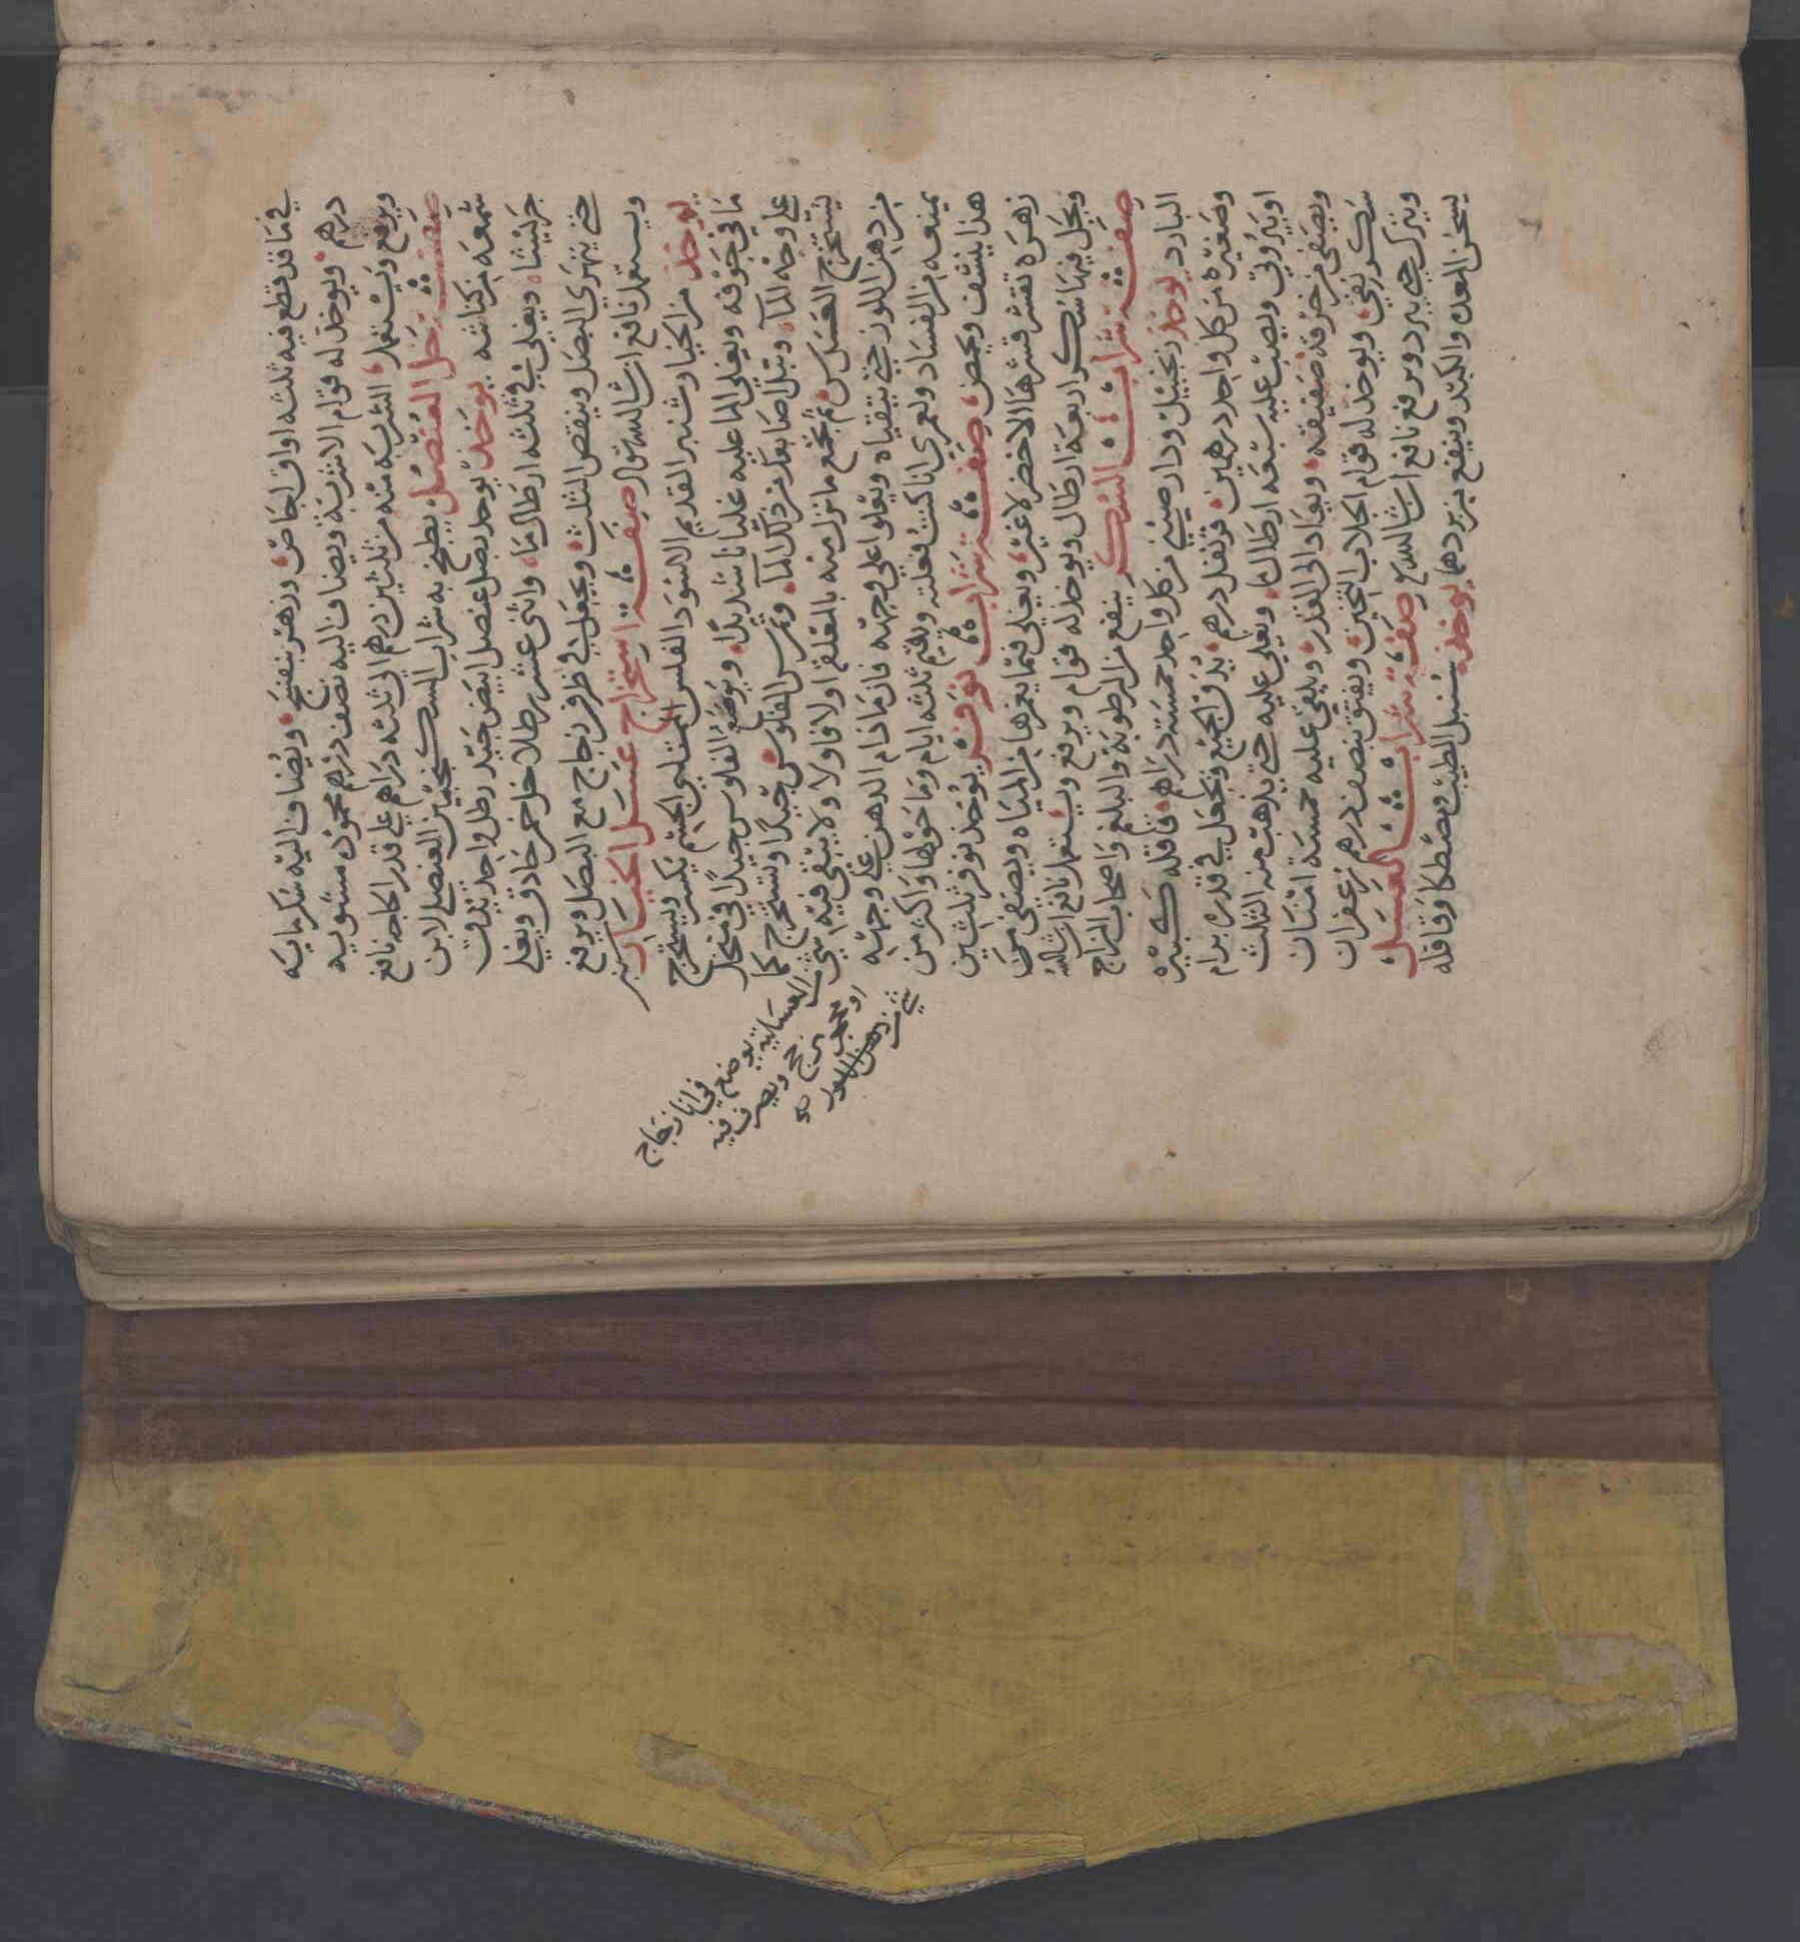 في ما قد قطع فيه ثلثه اواق اجاص ورهر بنفسج ويضاف اليه سكر مايه
درهم ويوخد له قوام الاشربة ويضاف اليه نصف درهم محموده مشويه
ويرفع ويستعمل الشربه منه من ثلثين درهم الي ثلثه دراهم علي قدر الحاجه نافع
صفة خل العنصل يطبخ به شراب السكنجبين العنصلي لابن
شمعه من كناشه يوخذ يوخد بصل عنصل ابيض جيد رطل واحد يدق
جريشا ويغلي في ثلثه ارطال ما واثني عشر رطلا خل خمر حاذق ويغلي
حتي يتهري البصل وينقص الثلث ويجعل في ظرف زجاج مع البصل ويرفع
ويستعمل نافع ان شا الله صفة استخراج عسل الخيار شنبر
يوخذ من الخيار شنبر القديم الاسود الفلس الممتلي الجسم يكسر ويستخرج
ما في جوفه ويغلي الما عليه غليانا شديدًا ويوضع الفلوس جيدًا في منخل
علي وجه الما وتبل اصابعك من ذلك الما وتمرس الفلوس جيدًا وتستخرج كما
يستخرج العسل ثم تجمع ما نزل منه بالمعلقه اولا فاولا ولا يبقي فيه شي من العسليه يوضع في انا زجاج
من دهن اللوز حتي يتقياه ويعلوا علي وجهه فان ما دام الدهن علي وجهه
يمنعه من الفساد ولعمري انا كنت فعلته ويقيم ثلثه ايام وما حولها واكثر من
هذا ينشف ويحمض صفة شراب نوفر يوخذ نوفر ثلثين
زهره تقشر قشرها الاخضر لا غير ويغلي فيما يغمرها من المياه ويصفي من
ويحل فيها سكر اربعة ارطال ويوخذ له قوام ويرفع ويستعمل نافع ان شا الله
صفة شراب السكر ينفع من الرطوبه والبلغم واصحاب المزاج
البارد يوخذ زنجبيل ودار صيني من كل واحد خمسة دراهم قاقله كبيره
وصغيره من كل واحد درهمين قرنفل درهم يدق الجميع ويجعل في قدر برام
ويصب عليه سبعه ارطال ما ويغلي عليه حتي يذهب منه الثلث
ويصفي من خرقه صفيقه ويعاد الي القدر ويلقي عليه خمسة امنان
سكر نقي ويوخذ له قوام الجلاب الثخين ويفتق بنصف درهم زعفران
ويترك حتي يبرد ويرفع نافع ان شا الله صفة شراب العسل
يسخن المعده والكبد وينفع من بردهما يوخذ سنبل الطيب ومصطكا وقاقله